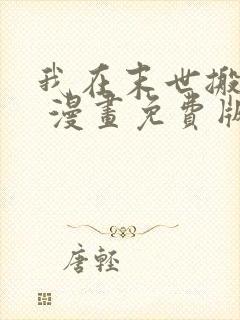 我在末世搬
漫畫免費版
唐輕